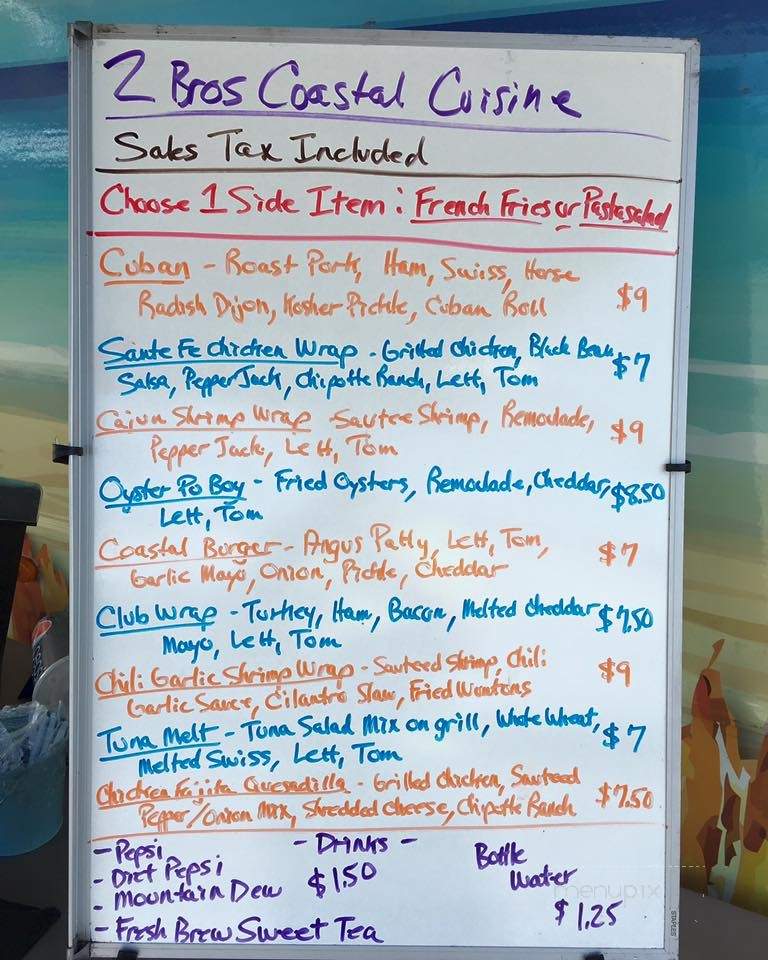 2 Bros Coastal Cuisine
Sales Tax Included
Choose 1 Side Item : French Fries or Pasta salad
Cuban - Roast Pork, Ham, Swiss, Horse
Radish Dijon, Kosher Pickle, Cuban Roll $9
Sante Fe Chicken Wrap - Grilled Chicken, Black Bean
Salsa, Pepper Jack, Chipotle Ranch, Lett, Tom $7
Cajun Shrimp Wrap - Sautee Shrimp, Remoulade,
Pepper Jack, Lett, Tom $9
Oyster Po Boy - Fried Oysters, Remoulade, Cheddar, $8.50
Lett, Tom
Coastal Burger - Angus Patty, Lett, Tom, $7
Garlic Mayo, Onion, Pickle, Cheddar
Club Wrap - Turkey, Ham, Bacon, Melted Cheddar $7.50
Mayo, Lett, Tom
Chili Garlic Shrimp Wrap - Sauteed Shrimp, Chili $9
Garlic Sauce, Cilantro Slaw, Fried Wontons
Tuna Melt - Tuna Salad Mix on grill, Whole Wheat, $7
Melted Swiss, Lett, Tom
Chicken Fajita Quesadilla - Grilled Chicken, Sauteed
Pepper/Onion Mix, Shredded Cheese, Chipotle Ranch $7.50
- Drinks -
- Pepsi
- Diet Pepsi
- Mountain Dew $1.50
- Fresh Brew Sweet Tea
Bottle
Water
$1.25
menupix
STAPLES